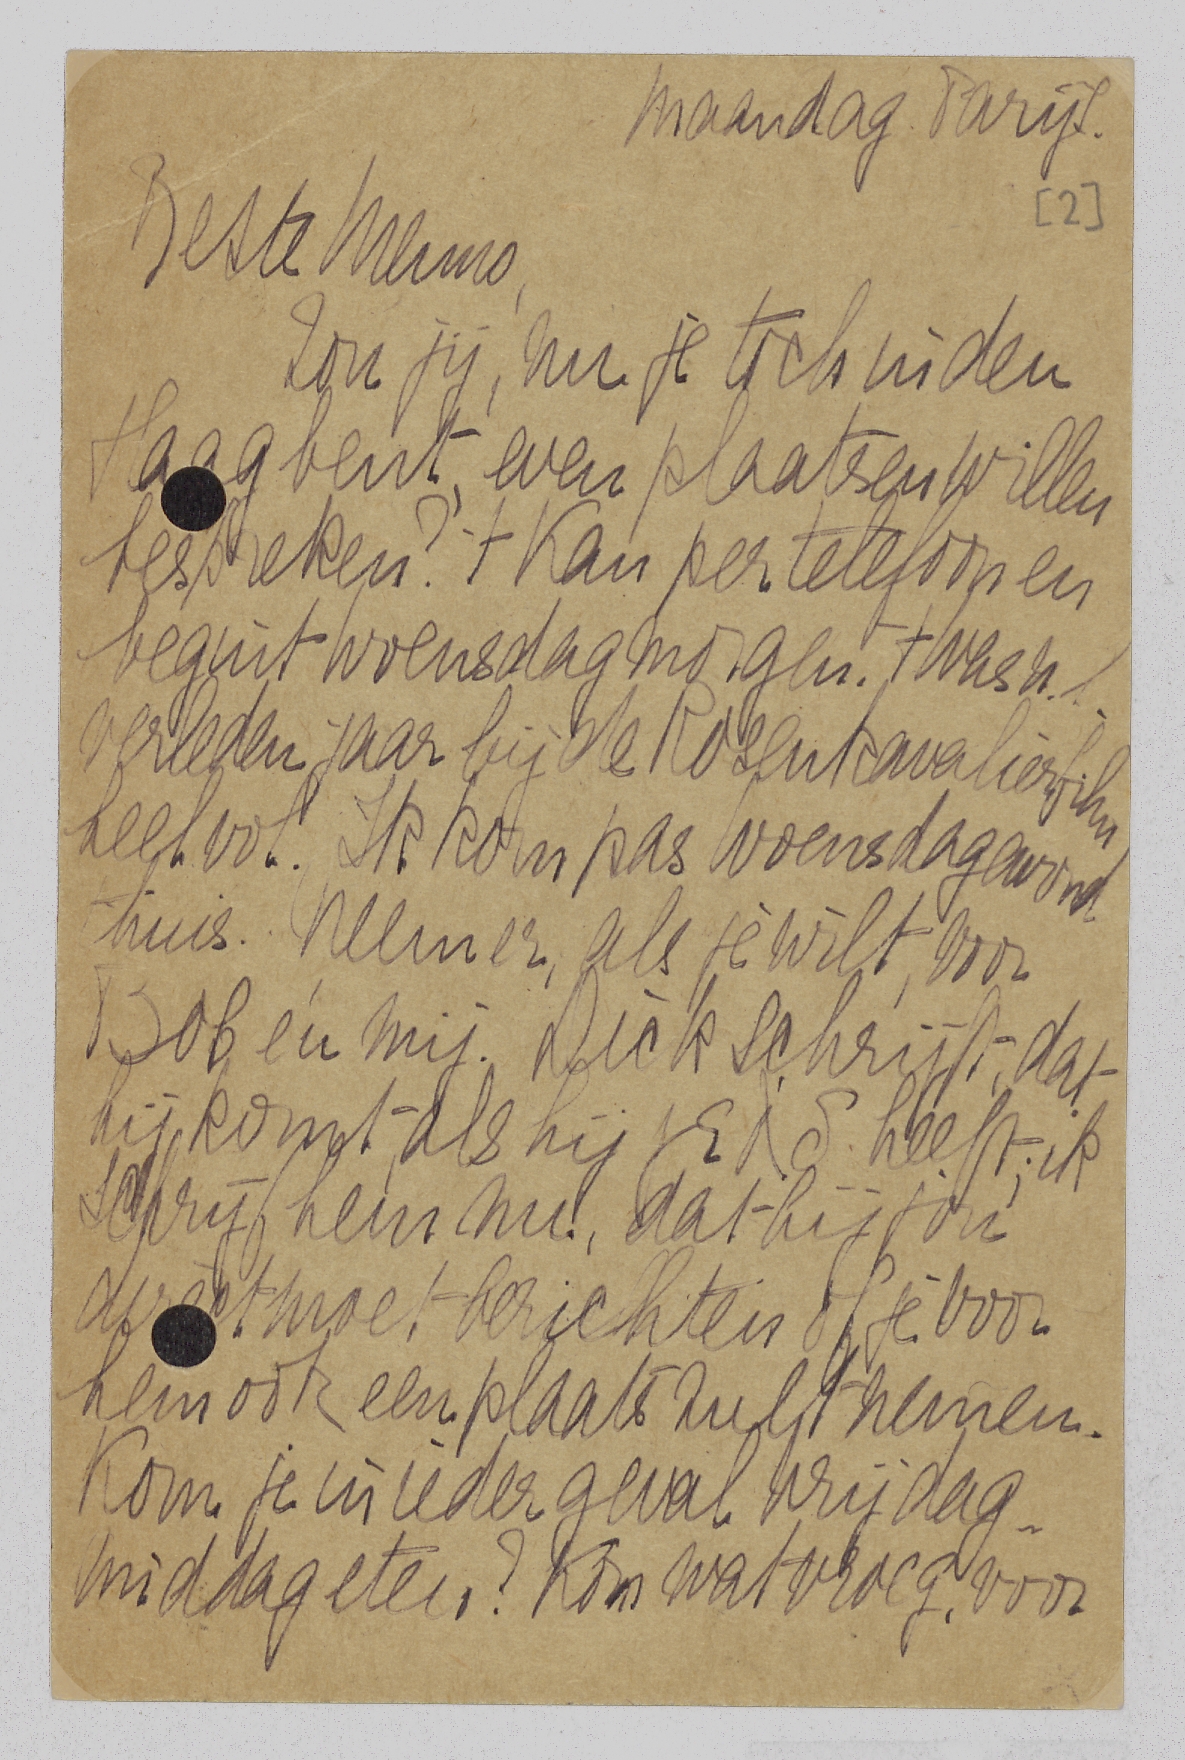 Maandag. Parijs.
[2]
Beste Menno,
Zou jij, nu je toch in den
Haag bent, even plaatsen willen
bespreken? 't Kan per telefoon en
begint woensdagmorgen. 't was n.l.
verleden jaar bij de Rosenkavalierfilm
heel vol. Ik kom pas woensdagavond
thuis. Neem er, als je wilt, voor
Bob en mij. Dick schrijft, dat
hij komt als hij heeft; ik
schrijf hem nu, dat hij jou
direct moet berichten of je voor
hem ook een plaats zult nemen.
Kom je in ieder geval vrijdag-
middag eten? Kom wat vroeg, voor